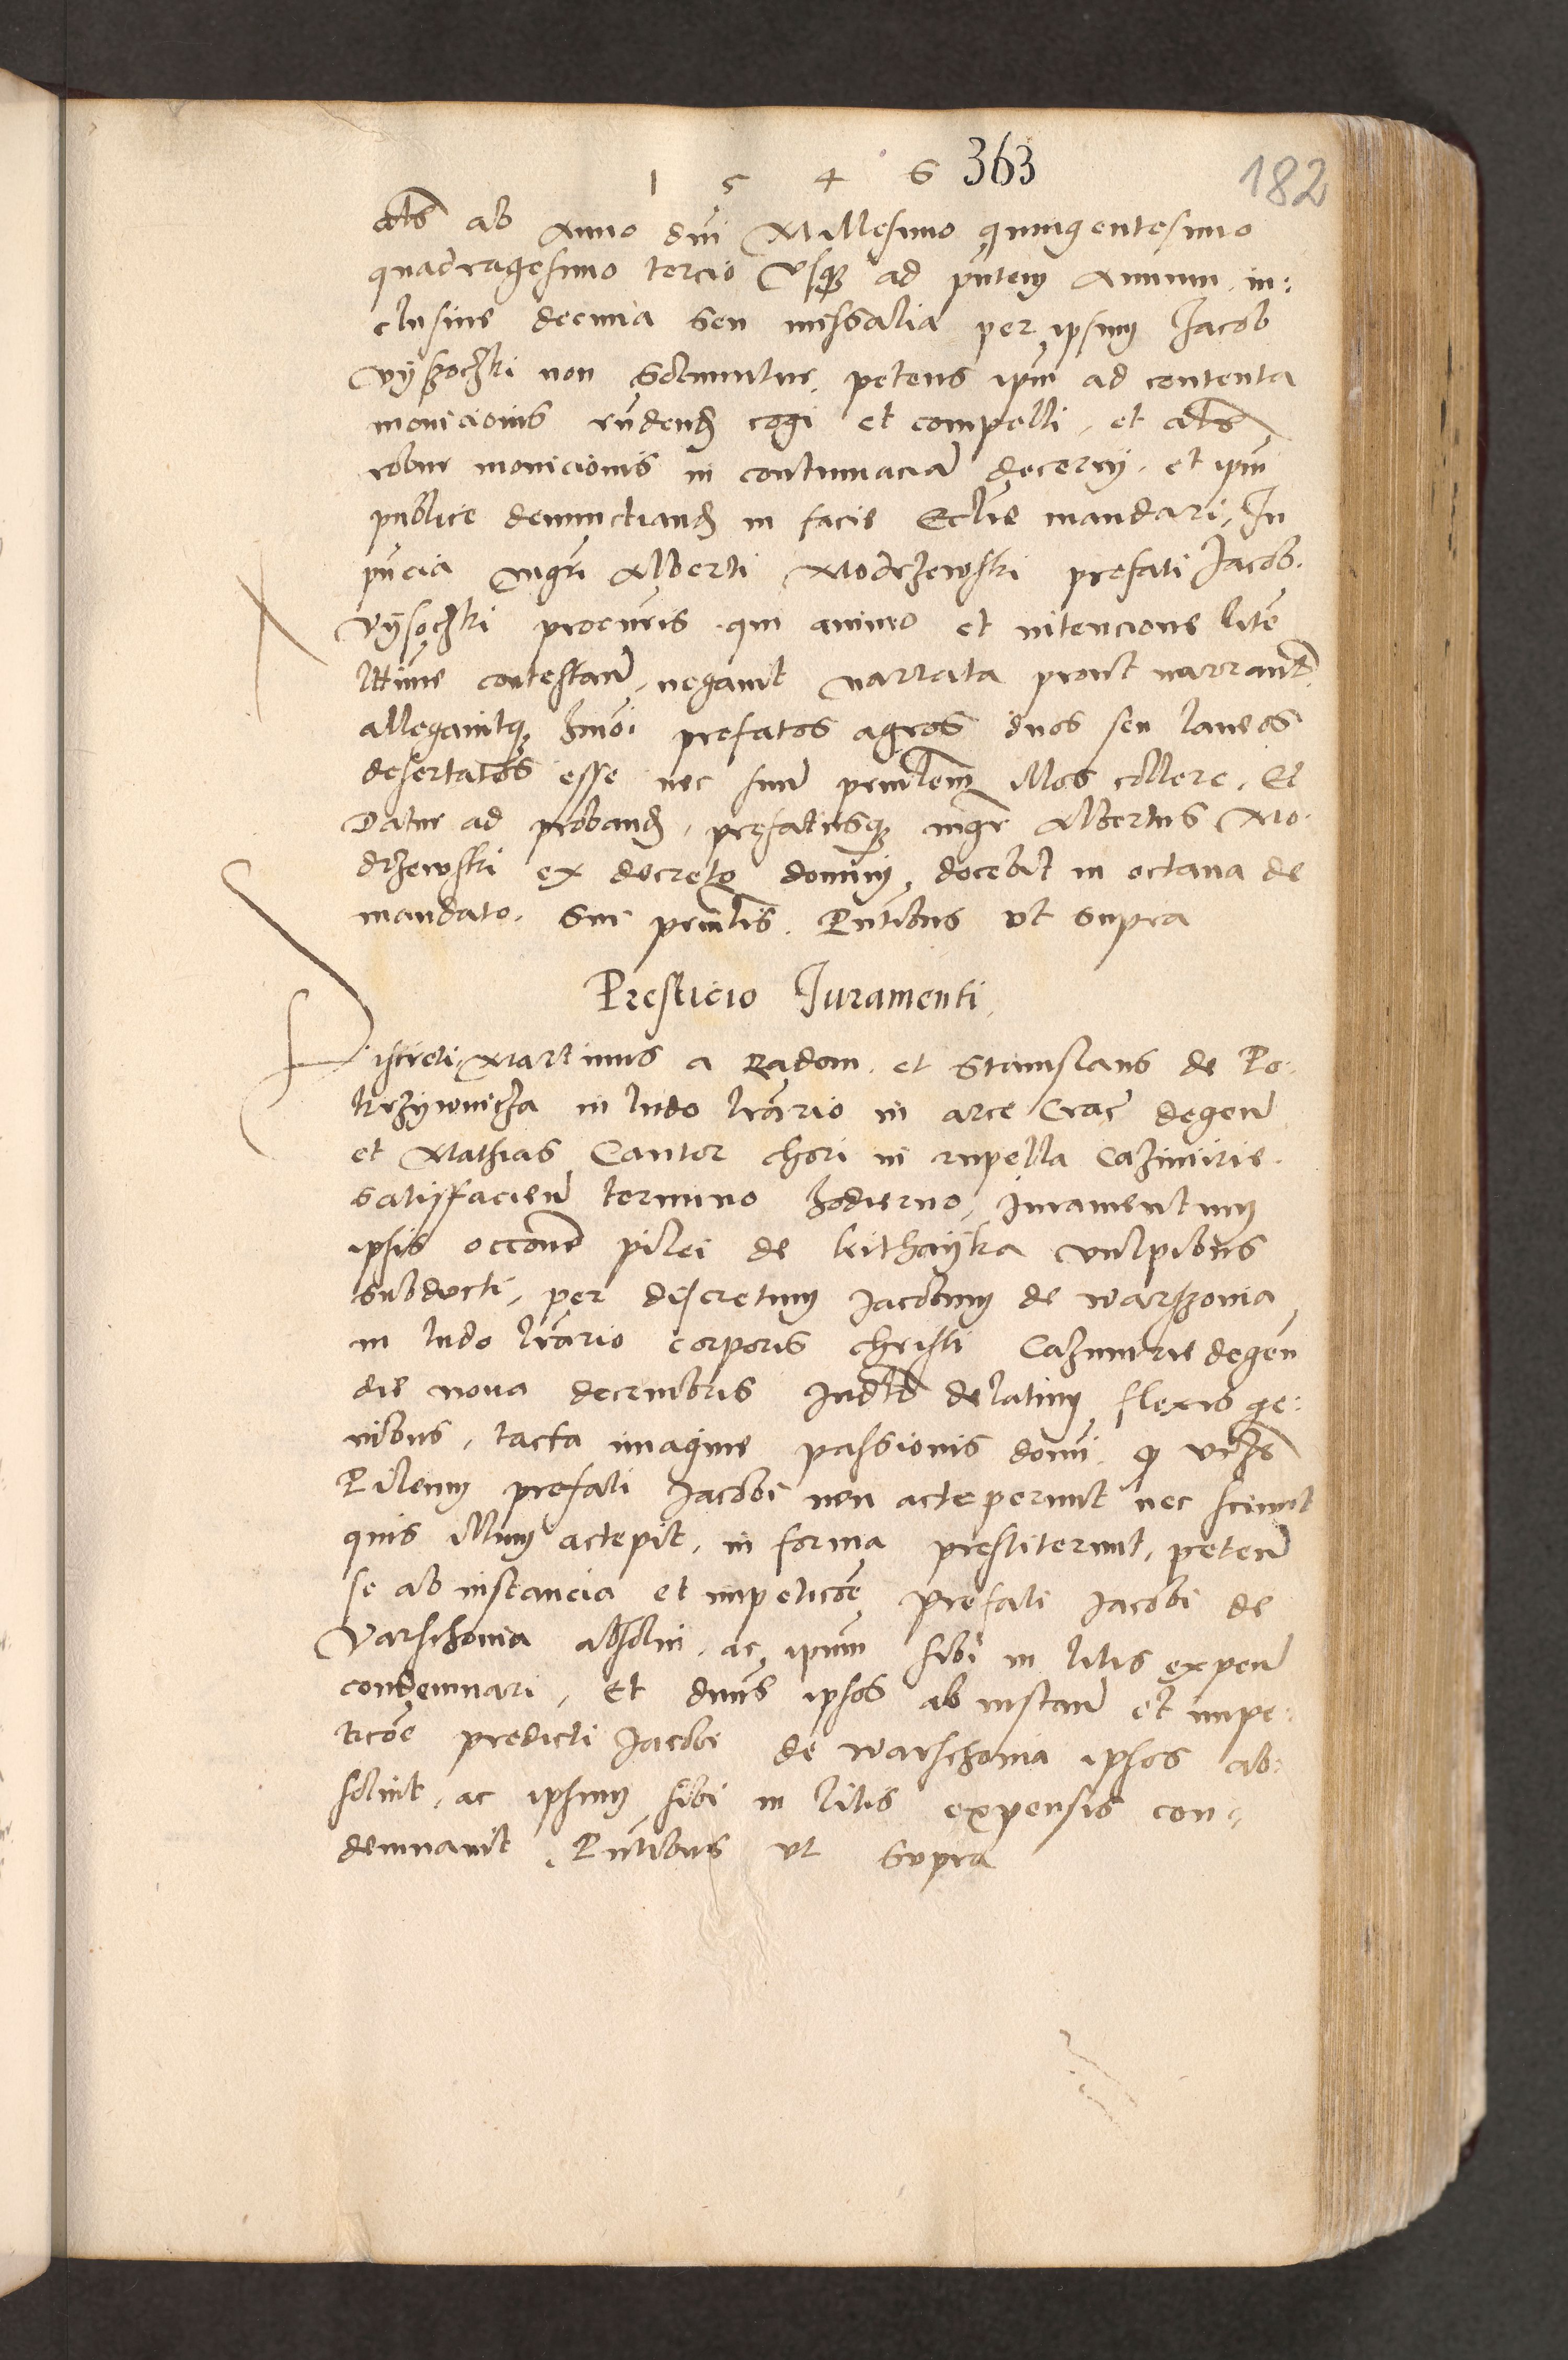 1 5 4 6 363 182
als ab Anno dni Millesimo quingentesimo
quadragesimo tercio Usq3 ad pntem Annum in:
clusiue decima seu missalia per ipsum Jacob
vyssoczki non soluuntur, petens ipm ad contenta
monicionis rndend cogi et compelli, et als
robur monicionis in contumaciam decerny, et ipm
publice denunctiand in facie Ecclie mandari, In
pncia mgri Alberti Modrzewski prefati Jacob.
Vysoczki procuris qui animo et intencione lite
lttime contestan, negauit narrata prout narrant
allegauitq3 hmoi prefatos agros duos seu laneos
desertatos esse nec suum prinlem illos collere, Et
Datur ad proband, prefatusq3 mgr Albertus Mo-
drzewski ex decreto dominy docebit in octaua de
mandato sui prinlis. Pntibus vt supra
Presticio Juramenti
Discreti Martinus a Radom et Stanislaus de Po-
krzywnicza in ludo lrario in arce Crac degen
et Mathias Cantor chori in rupella Cazimirie
satisfacien termino hodierno, iuramentum
ipsis occone pilei de kithayka vulpibus
subducti, per discretum Jacobum de warszouia
in ludo lrario corporis christi Cazimirie degen
die nona decembris Judlr delatum flexis ge:
nibus, tacta imagine passionis domi, q
Pileum prefati Jacobi non acceperunt nec sciunt
quis illum accepit, in forma prestiterunt, peten
se ab instancia et impeticoe prefati Jacobi de
Varschouia absolui, ac ipsum sibi in litis expen
condemnari, Et dnus ipsos ab instan et impe:
ticoe predicti Jacobi de warschouia ipsos ab:
soluit, ac ipsum sibi in litis expensis con-
demnauit, Pntibus vt supra